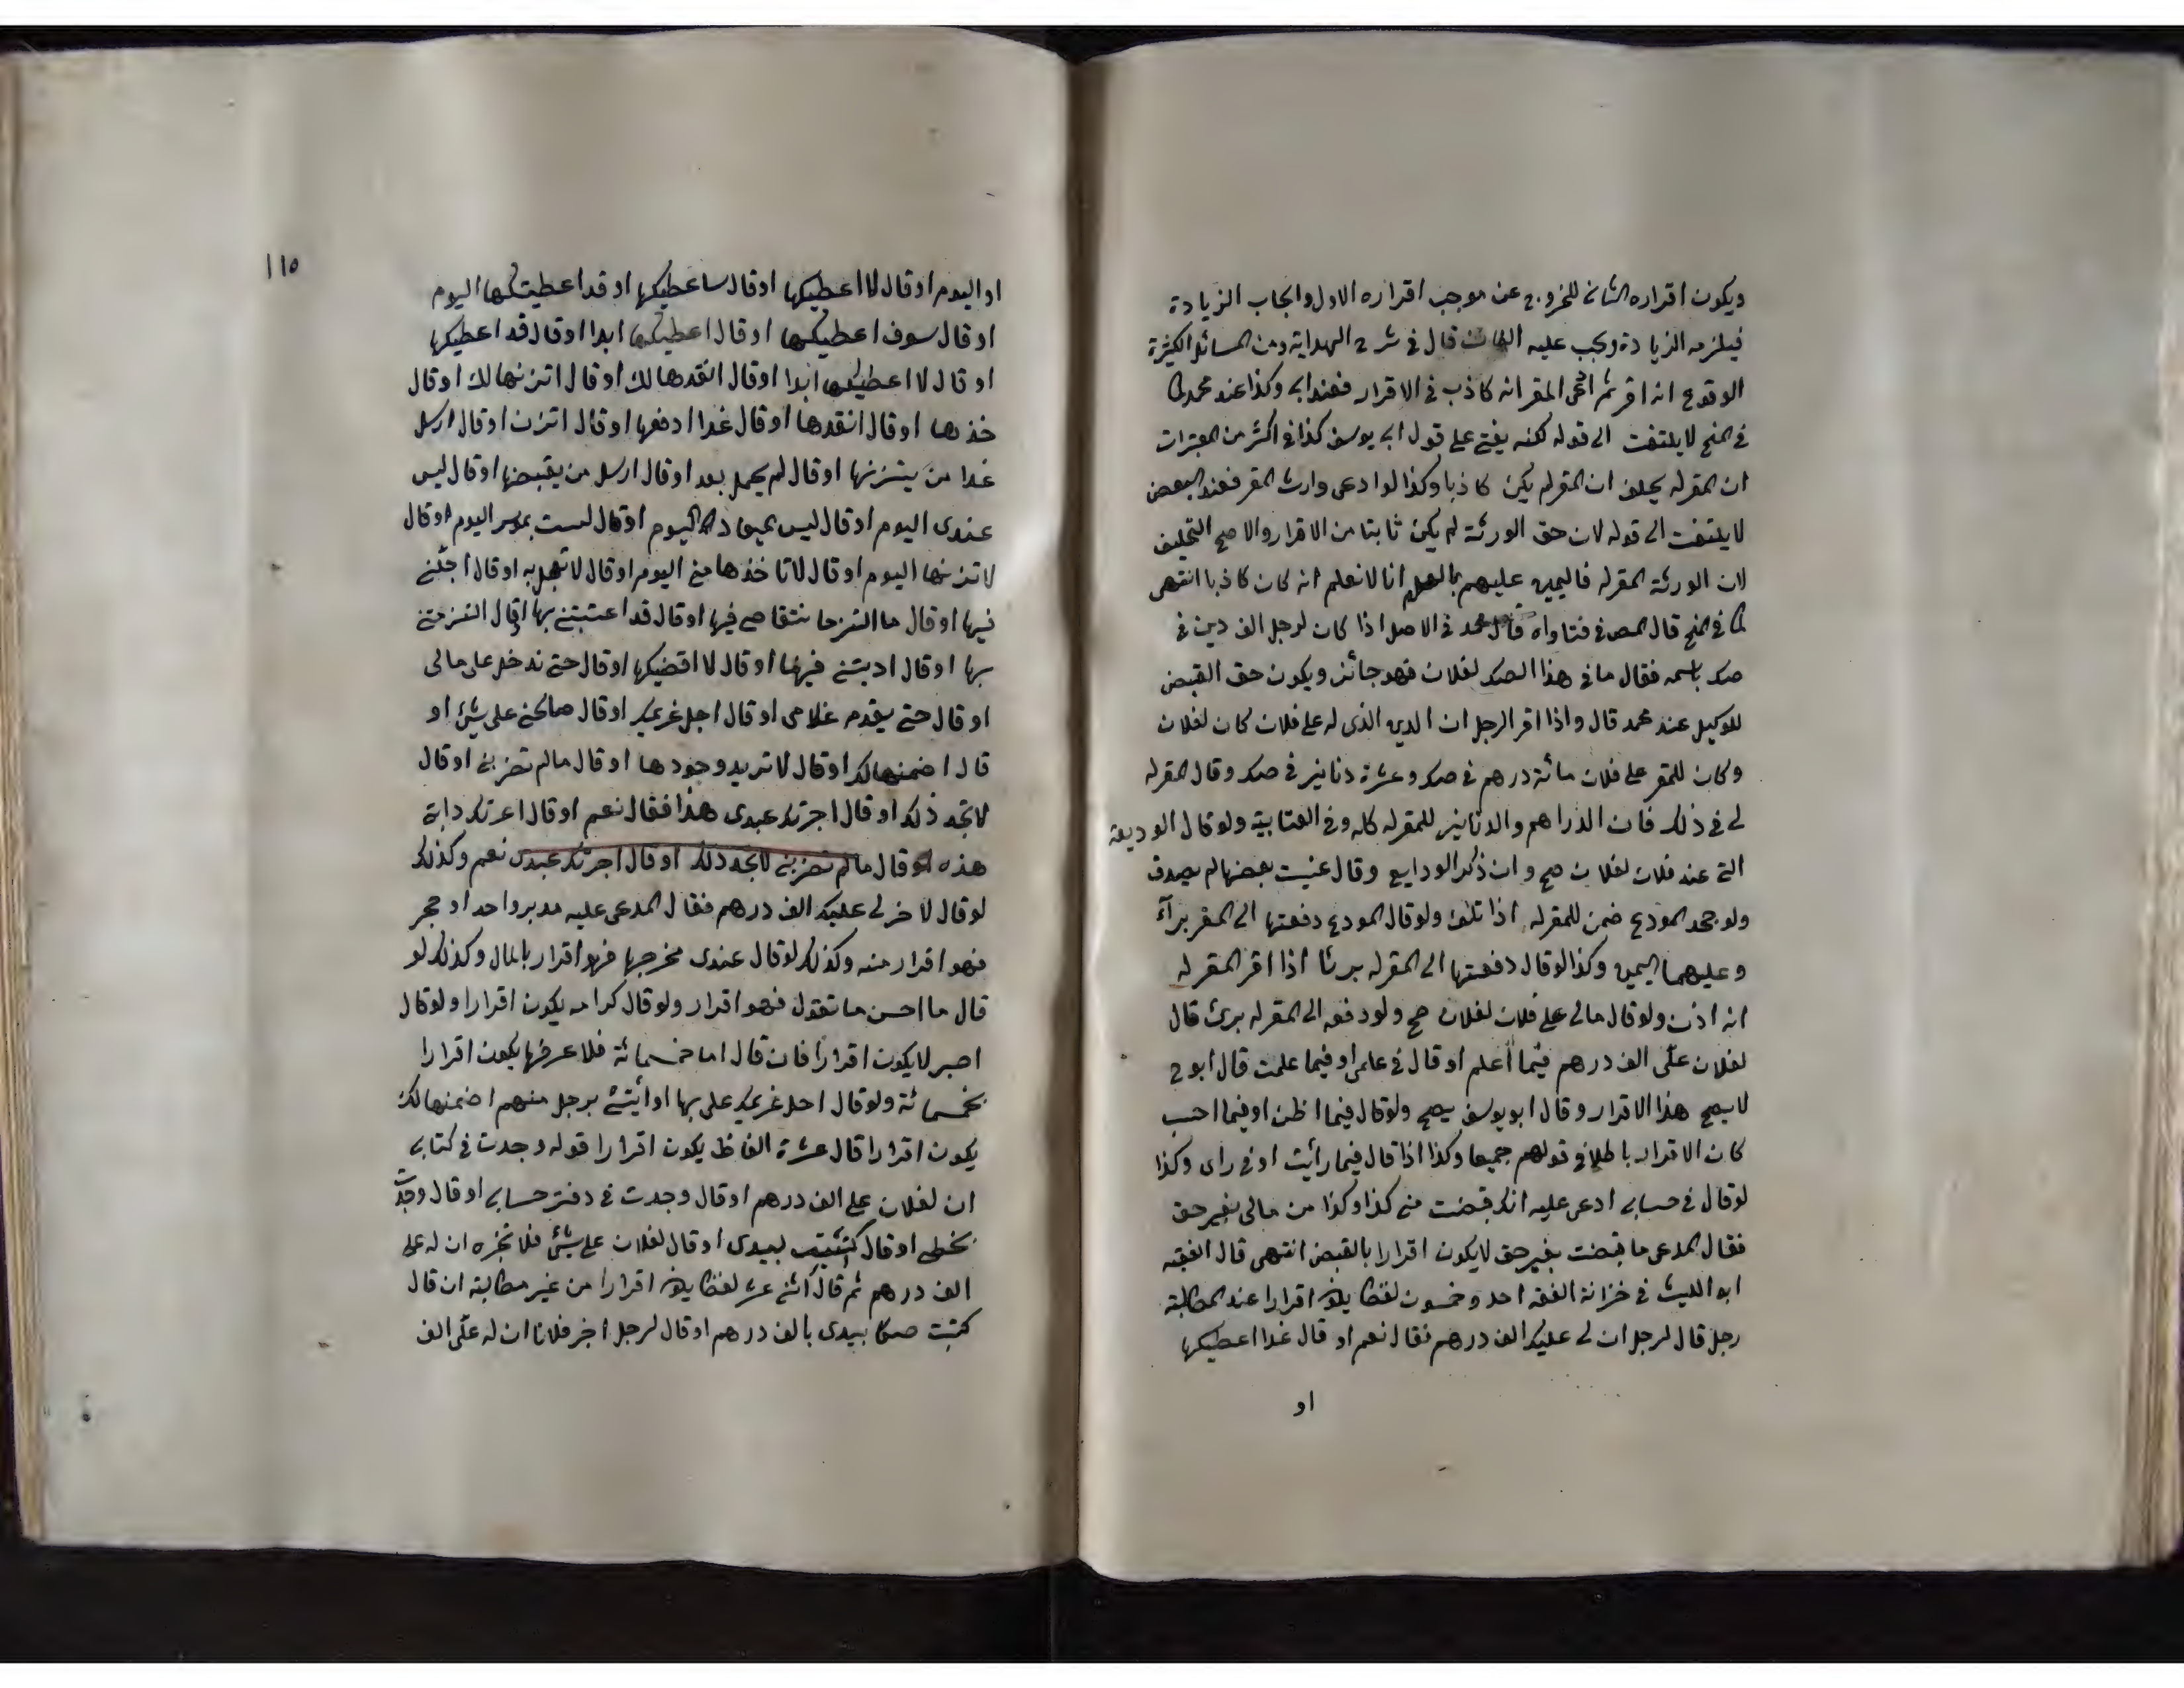 ويكون اقراره الثانى للخروج عن موجب اقراره الاول وايجاب الزيادة
فيلزمه الزيادة ويجب عليه قال فى شرح الهداية ومن المسائل الكثيرة
الوقوع انه اقر ثم ادعى المقر انه كاذب فى الاقرار فعندابى وكذا عند محمد كما
فى المنح لا يلتفت الى قوله لكنه يفتى على قول ابى يوسف كذا فى اكثر من المعتبرات
ان المقر له يحلف ان المقر لم يكن كاذبا وكذا لو ادعى وارث المقر فعند البعض
لا يلتفت الى قوله لان حق الورثة لم يكن ثابتا من الاقرار والاصح التحليف
لان الورثة المقر له فاليمين عليهم بالعلم انا لا نعلم انه كان كاذبا انتهى
كما فى المنح قال المص فى فتاواه قال محمد فى الاصل اذا كان لرجل الف دين فى
صك باسمه فقال ما فى هذا الصك لفلان فهو جائز ويكون حق القبض
للوكيل عند محمد قال واذا اقر الرجل ان الدين الذى له على فلان كان لفلان
وكان للمقر على فلان مائة درهم فى صك وعشرة دنانير فى صك وقال المقر له
لى فى ذلك فان الدراهم والدنانير للمقر له كله وفى العتابية ولو قال الوديعة
التى عند فلان لفلان صح وان ذكر الودايع وقال عنيت بعضها لم يصدق
ولو جحد المودع ضمن للمقر له اذا تلف ولو قال المودع دفعتها الى المقر برآء
وعليهما اليمين وكذا لو قال دفعتها الى المقر له برئا اذا اقر المقر له
انه اذن ولو قال مالى على فلان لفلان صح ولو دفعه الى المقر له برئ قال
لفلان علّى الف درهم فيما أعلم او قال فى علمى او فيما علمت قال ابو ح
لا يصح هذا الاقرار وقال ابو يوسف يصح ولو قال فيما اظن او فيما احسب
كان الاقرار باطلا فى قولهم جميعا وكذا اذا قال فيما رأيت او فى راى وكذا
لو قال فى حسابى ادعى عليه انك قبضت منى كذا وكذا من مالى بغير حق
فقال المدعى ما قبضت بغير حق لا يكون اقرارا بالقبض انتهى قال الفقيه
ابو الليث فى خزانة الفقه احد وخمسون لفظا يكون اقرارا عند المطالبة
رجل قال لرجل ان لى عليك الف درهم فقال نعم او قال غدا اعطيكها
او
١١٥
او اليوم او قال لا اعطيكها او قال ساعطيكها او قد اعطيتكها اليوم
او قال سوف اعطيكها او قال اعطيكها ابدا او قال قد اعطيكها
او قال لا اعطيكها ابدا او قال انقدها لك او قال اتزنها لك او قال
خذها او قال انقدها او قال غدا ادفعها او قال اتزن او قال ارسل
غدا من يتزنها او قال لم يحل بعد او قال ارسل من يقبضها او قال ليس
عندى اليوم او قال ليس اليوم او قال لست بموسر اليوم او قال
لا تزنها اليوم او قال لا تاخذها منى اليوم او قال لا تمهل به او قال اجلنى
فيها او قال ما نتقاص فيها او قال قد بها او قال
بها او قال فيها او قال لا اقضيكها او قال حتى ندخل على مالى
او قال حتى يقدم غلامى او قال اجل غريمك او قال صالحنى على شئ او
قال اضمنها لك او قال لا تريد وجودها او قال مالم تضربنى او قال
لا تجد ذلك او قال اجرتك عبدى هذا فقال نعم او قال اعرتك دابة
هذه او قال مالم تضربنى لا تجد ذلك او قال اجرتك عبدى نعم وكذلك
لو قال لاخر لى عليك الف درهم فقال المدعى عليه واحد او حجر
فهو اقرار منه وكذلك لو قال عندى مخرجها فهو اقرار بالمال وكذلك لو
قال ما احسن ما تقول فهو اقرار ولو قال يكون اقرارا ولو قال
اصبر لا يكون اقرارا فان قال اما خمسمائة فلا اعرفها يكون اقرارا
بخمسمائة ولو قال احل غريمك على بها او ايتنى برجل منهم اضمنها لك
يكون اقرارا قال عشرة الفاظ يكون اقرارا قوله وجدت فى كتابى
ان لفلان على الف درهم او قال وجدت فى دفتر حسابى او قال وجدت
بخطى او قال كتبت بيدى او قال لفلان على شئ فلا تخبره ان له على
الف درهم ثم قال اثنى عشر لفظا يكون اقرارا من غير مطالبة ان قال
كتبت صكا بيدى بالف درهم او قال لرجل اخبر فلانا ان له علّى الف